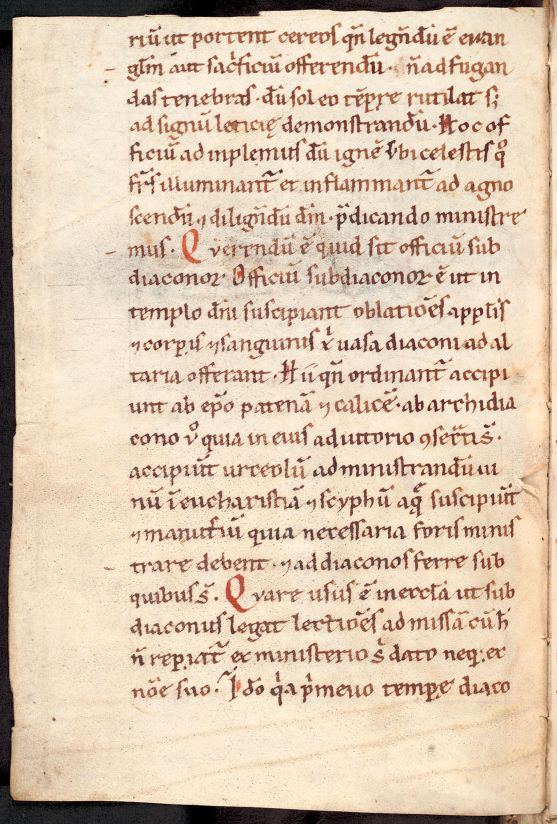 riū ut portent cereos qn̄ legn̄dū ē euan
gl̄m aut sac̍ficiū offerendū · n̄ ad fugan
das tenebras · dū sol eo tēpr̄e rutilat s;
ad signū leticię demonstrandū · Hoc of
ficiū adinplemus dū ignē ubi celestis
fr̄s illuminant̄ et inflammant̄ ad agno
scendū ⁊ dilign̄dū dn̄m · p̄dicando ministre
mus · Querendū ē quid sit officiū sub
diaconor · Officiū subdiaconor ē ut in
templo dn̄i suscipiant oblatiōes
⁊ corpis ⁊ sanguinis uasa diaconi ad al
taria offerant · qn̄ ordinant̄ accipi
unt ab ep̄o patenā ⁊ calicē · ab archidia
cono ů quia in eius adiutorio
accipiūt urceolū administrandū ui
nū ī eucharistiā ⁊ scyphū suscipiūt
⁊ quia necessaria foris minis
trare debent · ⁊ ad diaconos ferre sub
quibus s̄ · Quare usus ē in eccl̄a ut sub
diaconus legat lectiōes ad missā cū h̄
n̄ repiat̄ ex ministerio s̄ dato neq; ex
nōe suo · Ido q̍a p̍meuo tempr̄e diaco